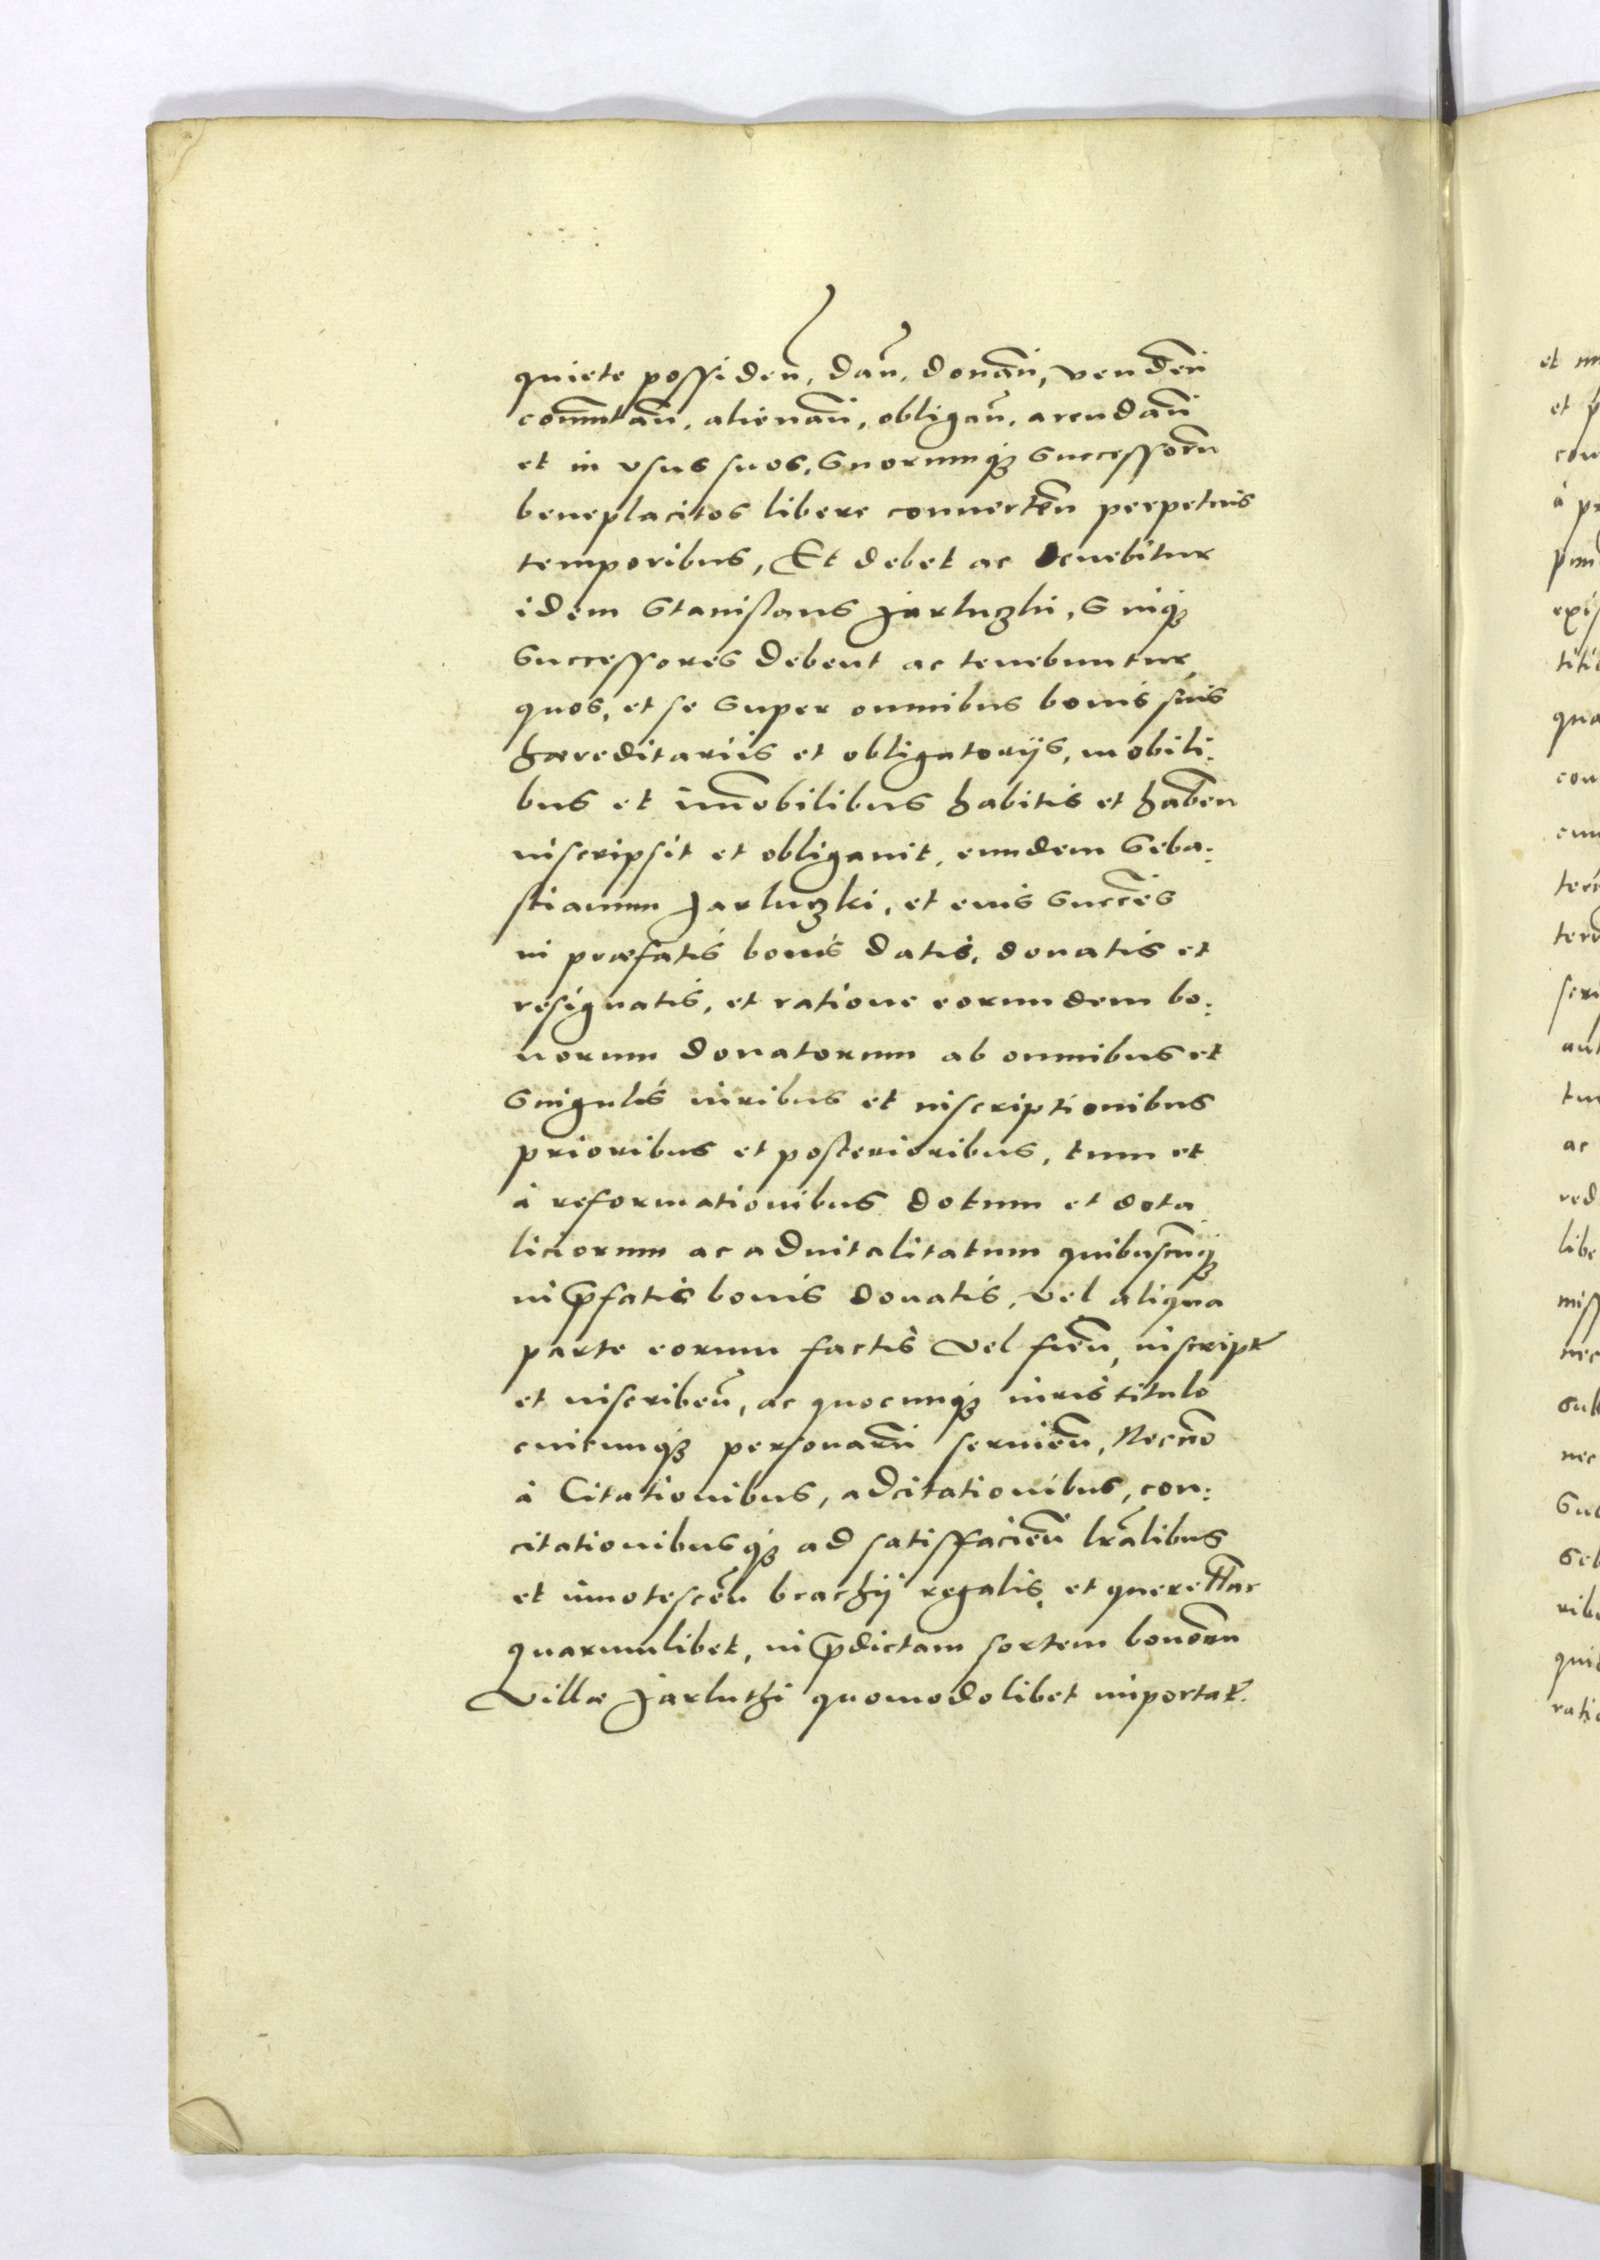 quiete possiden̄, dan̄, donan̄, venden̄
com̄utan̄, alienan̄, obligan̄, arendan̄
et in vsus suos, suorumq₃ successor̄u
beneplacitos libere conuerten̄ perpetuis
temporibus, Et debet ac tenebitur
idem Stanislaus Jarluzki, suiq₃
successores debent ac tenebuntur,
quos, et se super omnibus bonis suis
hæreditariis et obligatorijs, mobili:
bus et im̄obilibus habitis et haben̄
inscripsit et obligauit, eundem Seba:
stianum Jarluzki, et eius succēs
in præfatis bonis datis, donatis et
resignatis, et ratione eorundem bo:
norum donatorum ab omnibus et
singulis iuribus et inscriptionibus
prioribus et posterioribus, tum et
à reformationibus dotum et dota
liciorum ac aduitalitatum quibuscūq₃
in p̄fatis bonis donatis, vel aliqua
parte eorum factis vel fien̄, inscript
et inscriben̄, ac quocunq₃ iuris titulo
cuicunq₃ personar̄u seruien̄, Necnō
à Citationibus, adcitationibus, con:
citationibusq₃ ad satisfacien̄ lr̄alibus
et in̄otescen̄ brachij regalis, et querellar
quarumlibet, in p̄dictam sortem bonor̄u
Villæ Jarluthi quomodolibet importat.
et
et p
con
à pr
exis
titi
qua
con
ter
ac
red
libe
miss
nec
sub
nec
qui
rati